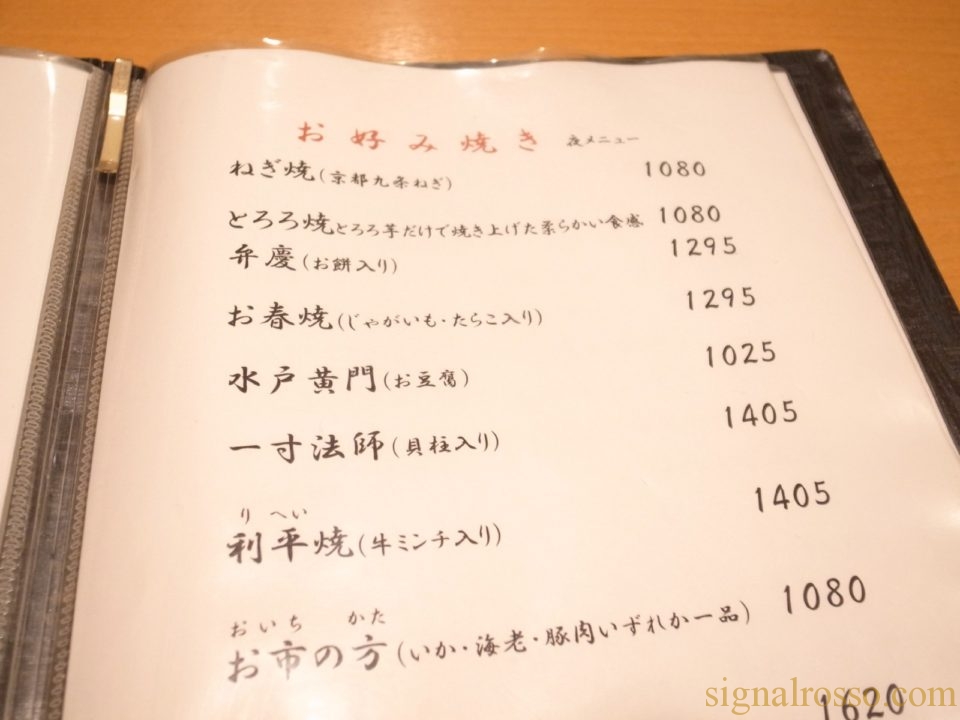 お好み焼き 夜メニュー
ねぎ焼(京都九条ねぎ) 1080
とろろ焼とろろ芋だけで焼き上げた柔らかい食感 1080
弁慶(お餅入り) 1295
お春焼(じゃがいも・たらこ入り) 1295
水戸黄門(お豆腐) 1025
一寸法師(貝柱入り) 1405
り へい
利平焼(牛ミンチ入り) 1405
おいち かた
お市の方(いか・海老・豚肉いずれか一品) 1080
1620
signalrosso.com